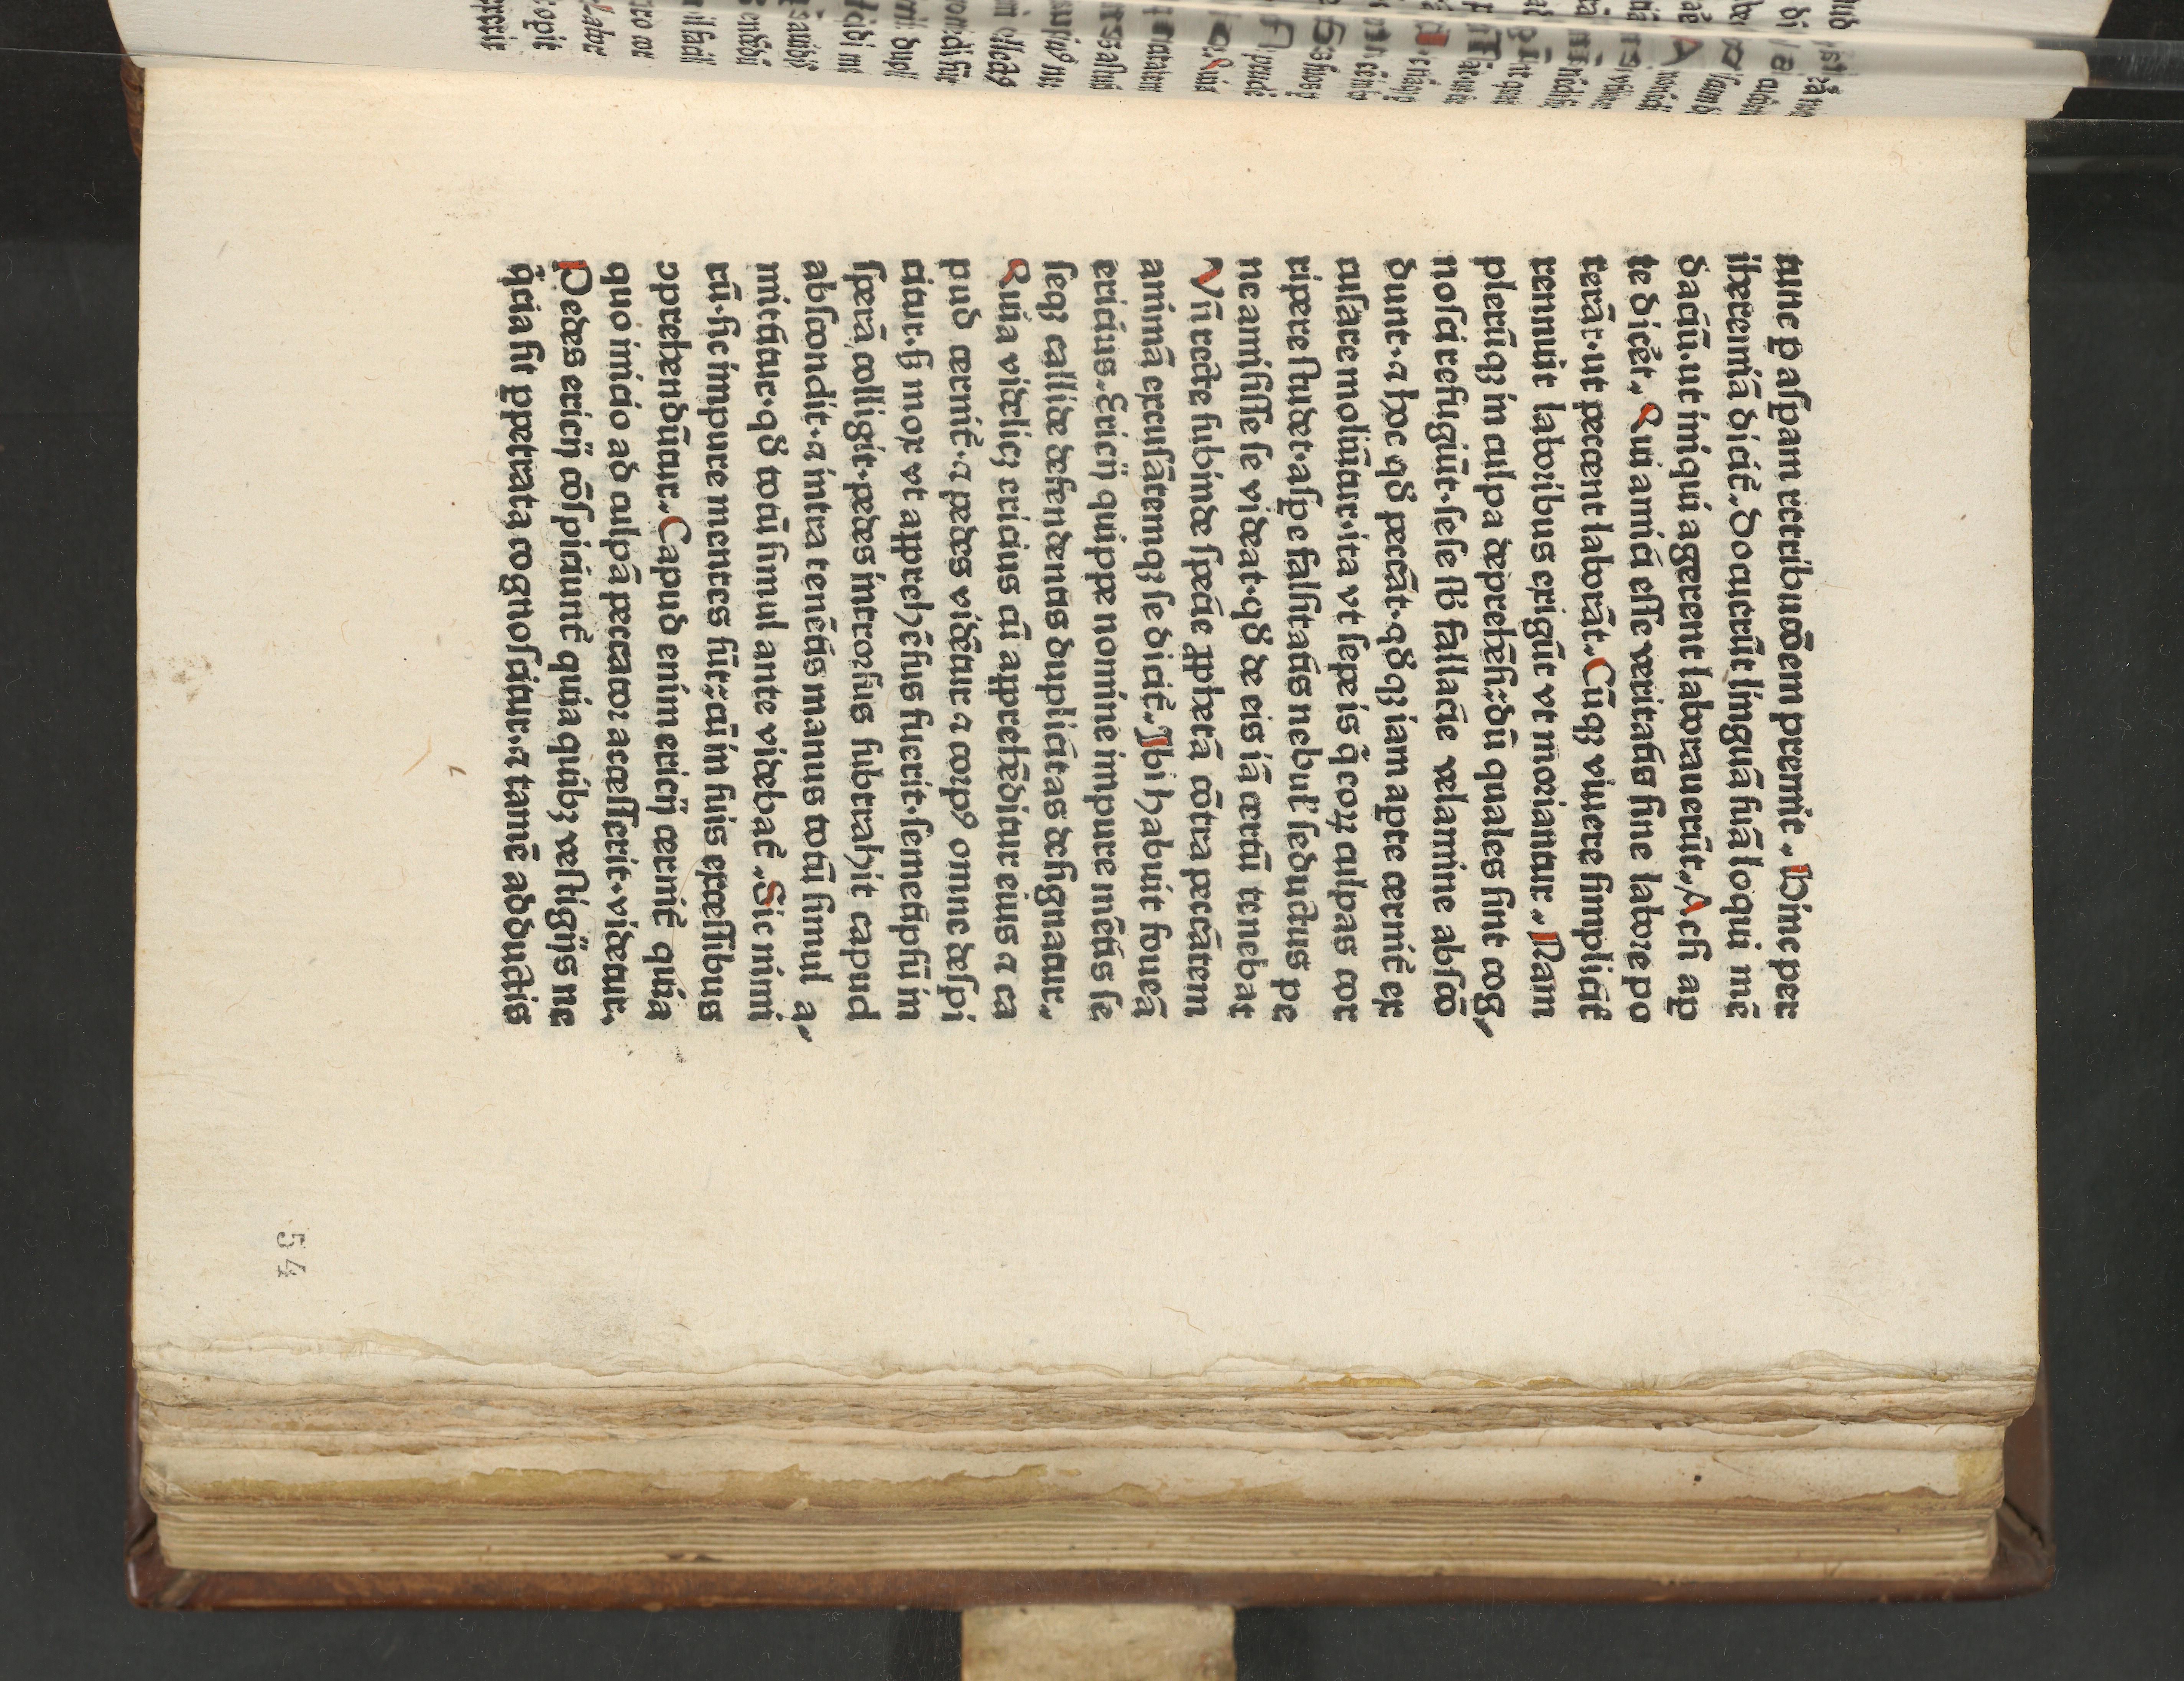 tune p aſpam retribucōem premit. Hinc per
iheremiā dicit̄. Docuerūt linguā ſuā loqui mē
daciū. ut iniqui agerent laborauerūt. Acſi ap
te dicēt. Qui amici eſſe veritatis ſine labore po
terāt. ut peccent laborāt. Cūqꝫ viuere ſimplicit̄
rennuūt laboribus exigūt vt moriantur. Nam
plerūqꝫ in culpa deprehēſi: dū quales ſint cog⸗
noſci refugiūt. ſeſe ſb̄ fallacie velamine abſcō
dunt. ⁊ hoc qd̄ peccāt. qd̄ qꝫ iam apte cernit̄ ex
cuſare moliūtur. ita vt ſepe is q̄ eoꝝ culpas cor
ripere ſtudet. aſpe falſitatis nebul̓ ſeductus pe
ne amiſiſſe ſe videat. qd̄ de eis iā certū tenebat
Vn̄ recte ſubinde ſpecie ꝓphetā cōtra peccātem
animā excuſātemqꝫ ſe dicit̄. Ibi habuit foueā
ericius. Ericij quippe nomine impure mētis ſe
ſeqꝫ callide defendentis duplicitas deſignatur.
Quia videlicꝫ ericius cū apprehēditur eius ⁊ ca
pud cernit̄. ⁊ pedes videtur ⁊ corpꝰ omne deſpi
citur. ſꝫ mox vt apprehēſus fuerit. ſemetipſū in
ſperā colligit. pedes introrſus ſubtrahit capud
abſcondit. ⁊ intra tenētis manus totū ſimul a⸗
mittitur. qd̄ totū ſimul ante videbat̄. Sic nimi
rū. ſic impure mentes ſūt: cū in ſuis exceſſibus
ꝯprehendūtur. Capud enim ericij cernit̄ quia
quo inicio ad culpā peccator acceſſerit. videtur.
Pedes ericij cōſpiciunt̄ quia quibꝫ veſtigijs ne
q̄cia ſit ppetrata cognoſcitur. ⁊ tamē adductis
54